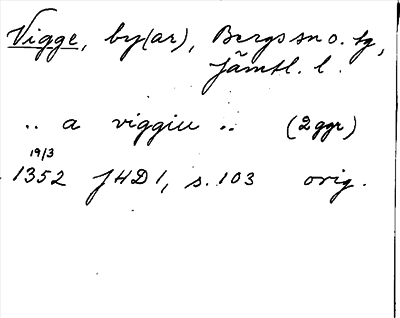 Vigge, by(ar), Bergs sn o. tg,
Jämtl. l.
.. a viggiu .. (2ggr)
19/3
1352 JHD 1, s. 103 orig.